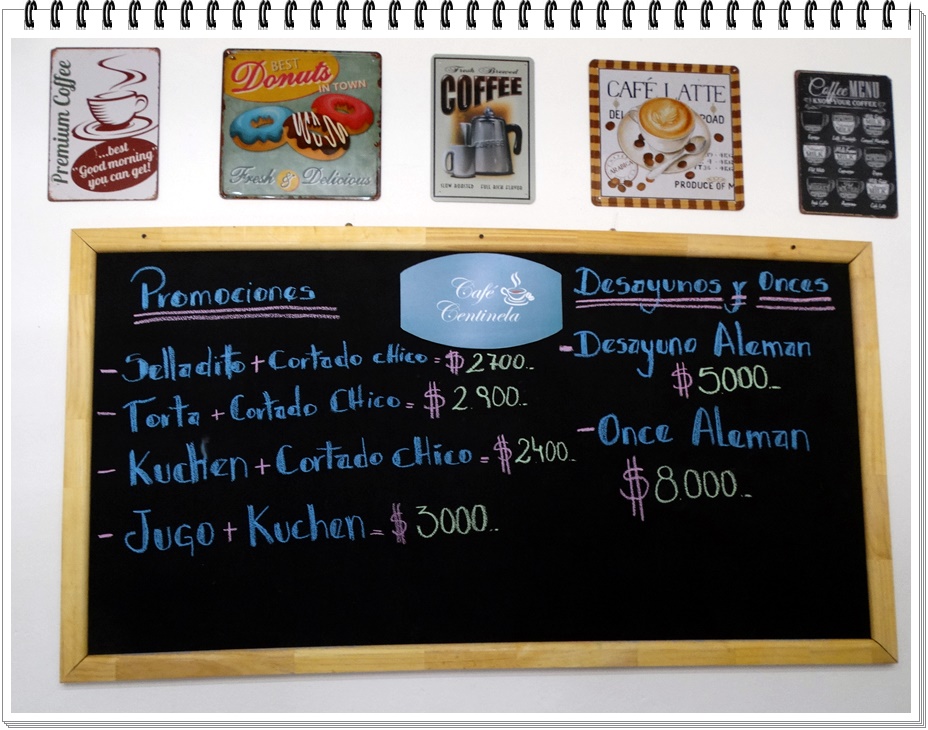 Premium Coffee
...best
"Good morning"
you can get!
BEST
Donuts
IN TOWN
Fresh & Delicious
Fresh Brewed
COFFEE
SLOW ROASTED FULL RICH FLAVOR
CAFÉ LATTE
DEL
ROAD
PRODUCE OF M
Coffee MENU
KNOW YOUR COFFEE
Café
Centinela
Promociones
- Selladito + Cortado cHico = $ 2700.-
- Torta + Cortado CHico = $ 2.900.-
- Kuchen + Cortado cHico = $ 2400.-
- Jugo + Kuchen = $ 3000.-
Desayunos y Onces
- Desayuno Aleman
$ 5000.-
- Once Aleman
$ 8.000.-